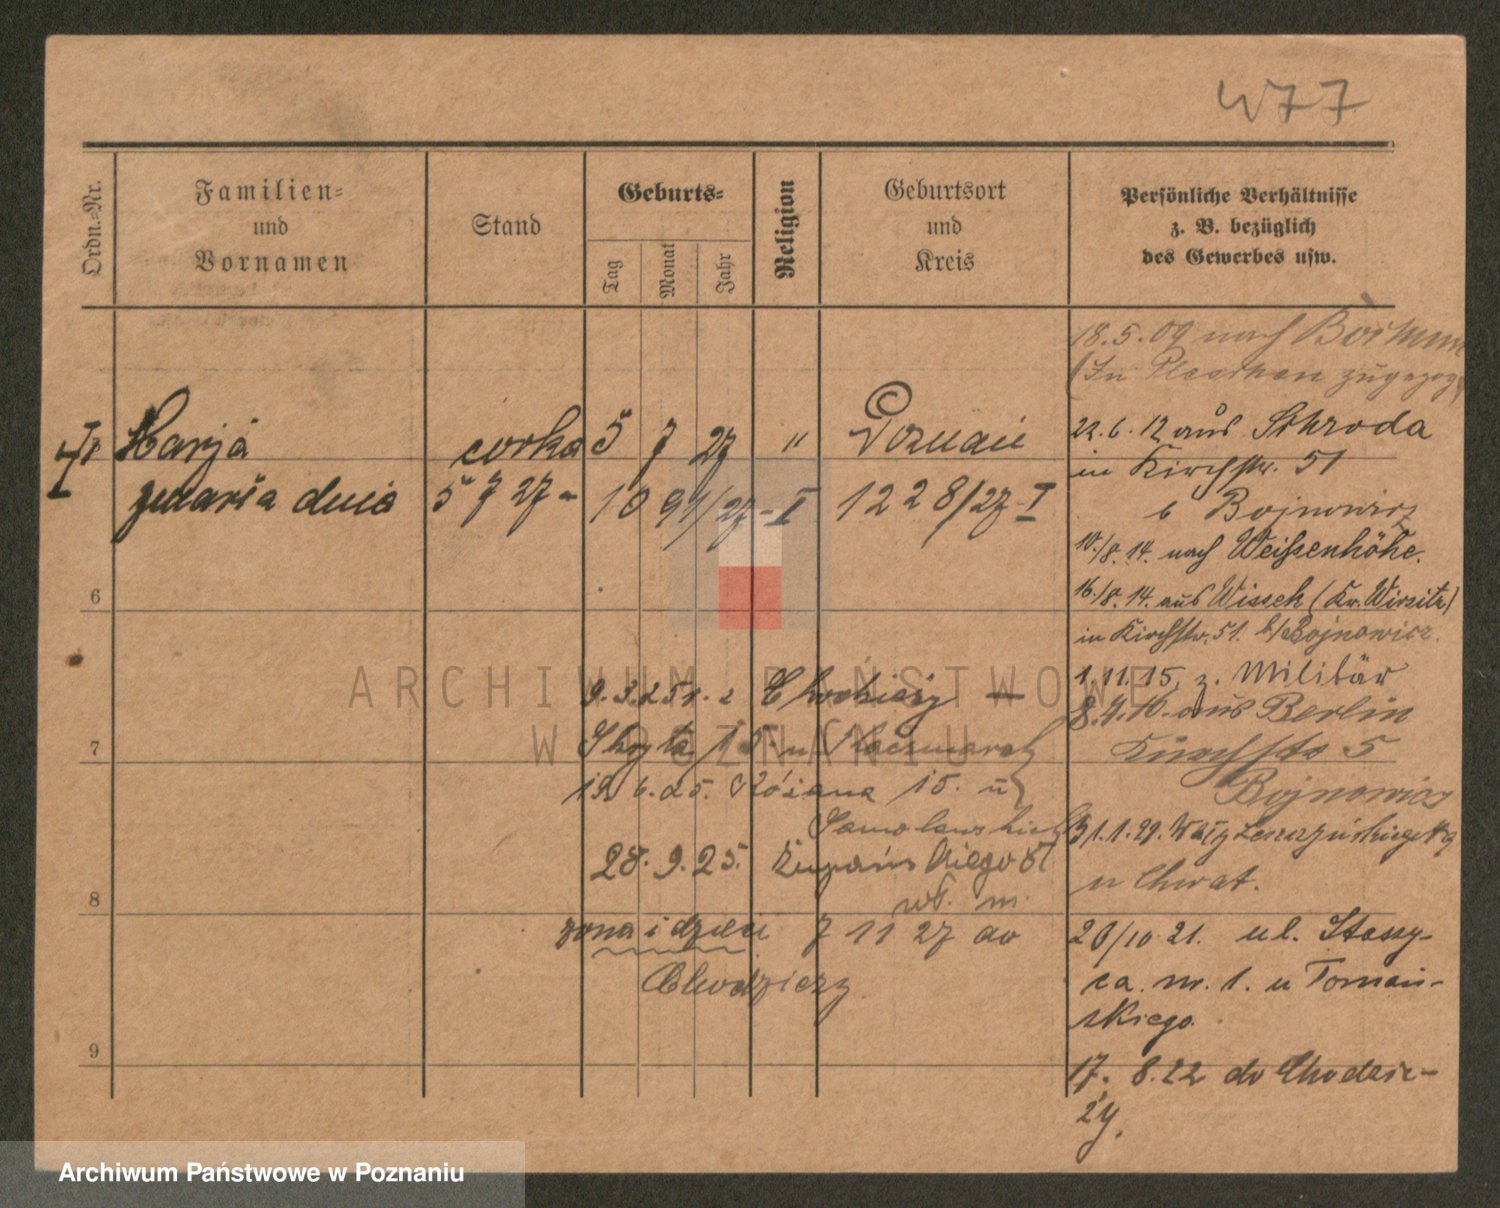 477
Ordn.-Nr.
Familien-
und
Vornamen
Stand
Geburts-
Tag
Monat
Jahr
Religion
Geburtsort
und
Kreis
Persönliche Verhältnisse
z. B. bezüglich
des Gewerbes usw.
18.5.09 nach
(In zugezog.
Marja córka 5 7 27 " Poznań
zmarła dnia 5 7 27 - 1091/27-I 1228/27-I
22.6.12 aus Schroda
in Kirchstr. 51
b Bojnowicz
10./8.14. nach Weißenhöhe.
16./8.14. aus Wissek (Kr. Wirsitz)
in Kirchstr. 51. b/Bojnowicz.
1.11.15. z. Militär
aus Berlin
Kirchstr 5
Bojnowicz
31.1.
u Chwat.
20/10 21. ul. Staszy-
ca nr. 1. u Tomań-
skiego.
17. 8.22 do Chodzie-
ży.
6
7
8
9
9.3.25 z Chodzieży —
Skryta 15 u Kaczmarek
19.6.25. Różana 15. u
28.9.25. Żupańskiego
wł. m.
żona i dzieci 7 11 27 do
Chodzieży
ARCHIWUM PAŃSTWOWE
W POZNANIU
Archiwum Państwowe w Poznaniu